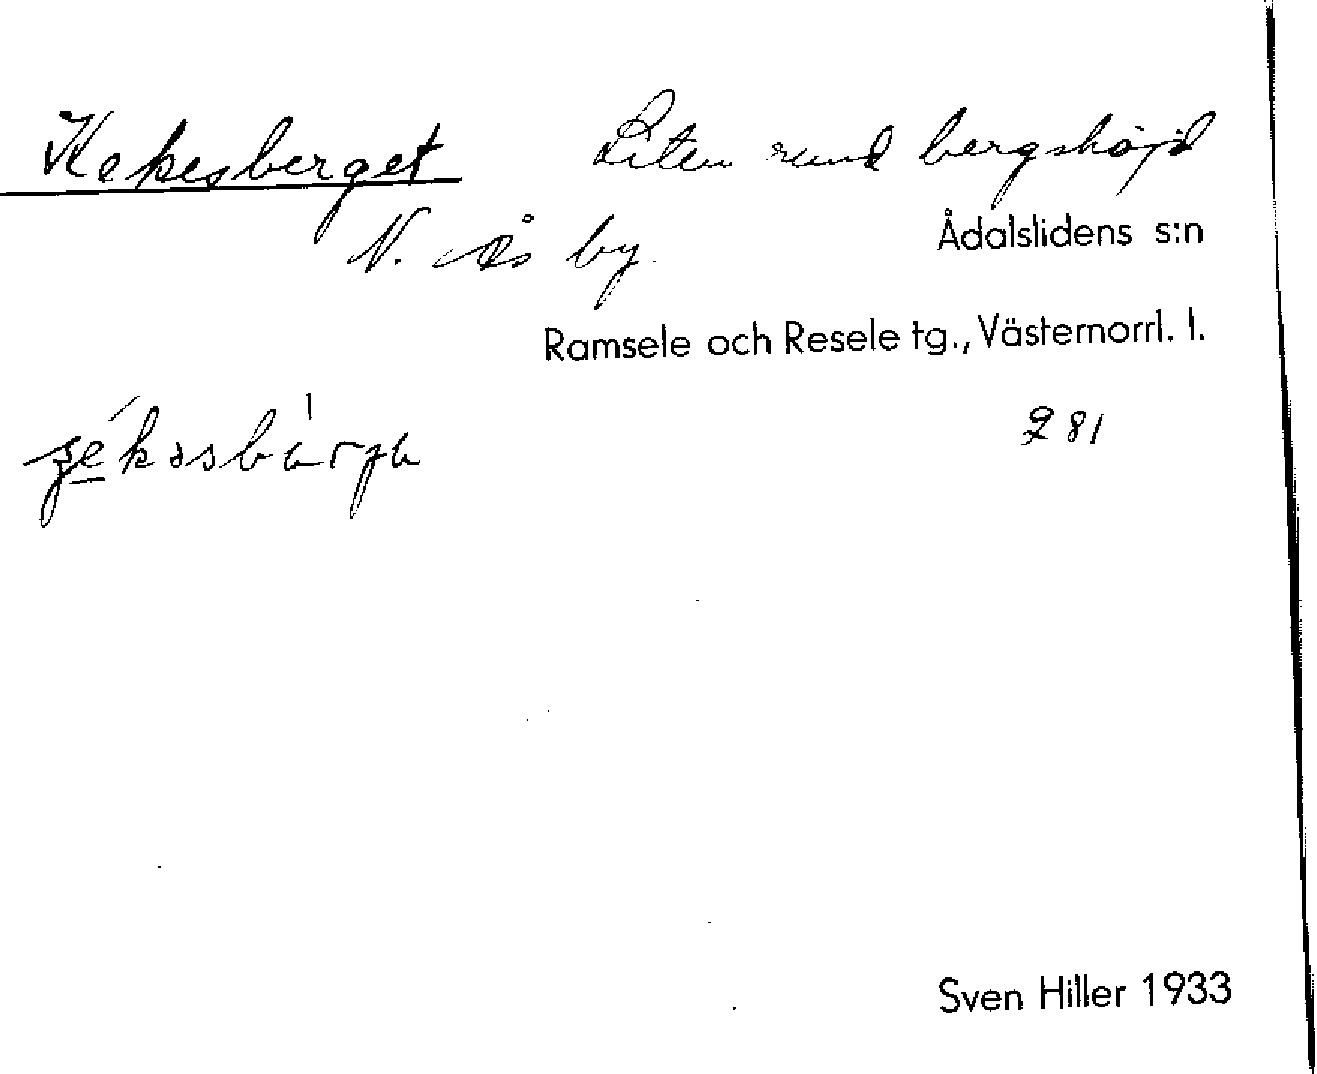 Kekesberget Liten rund bergshöjd
N. Ås by.
Ådalslidens s:n
Ramsele och Resele tg., Västernorrl. l.
281
Sven Hiller 1933